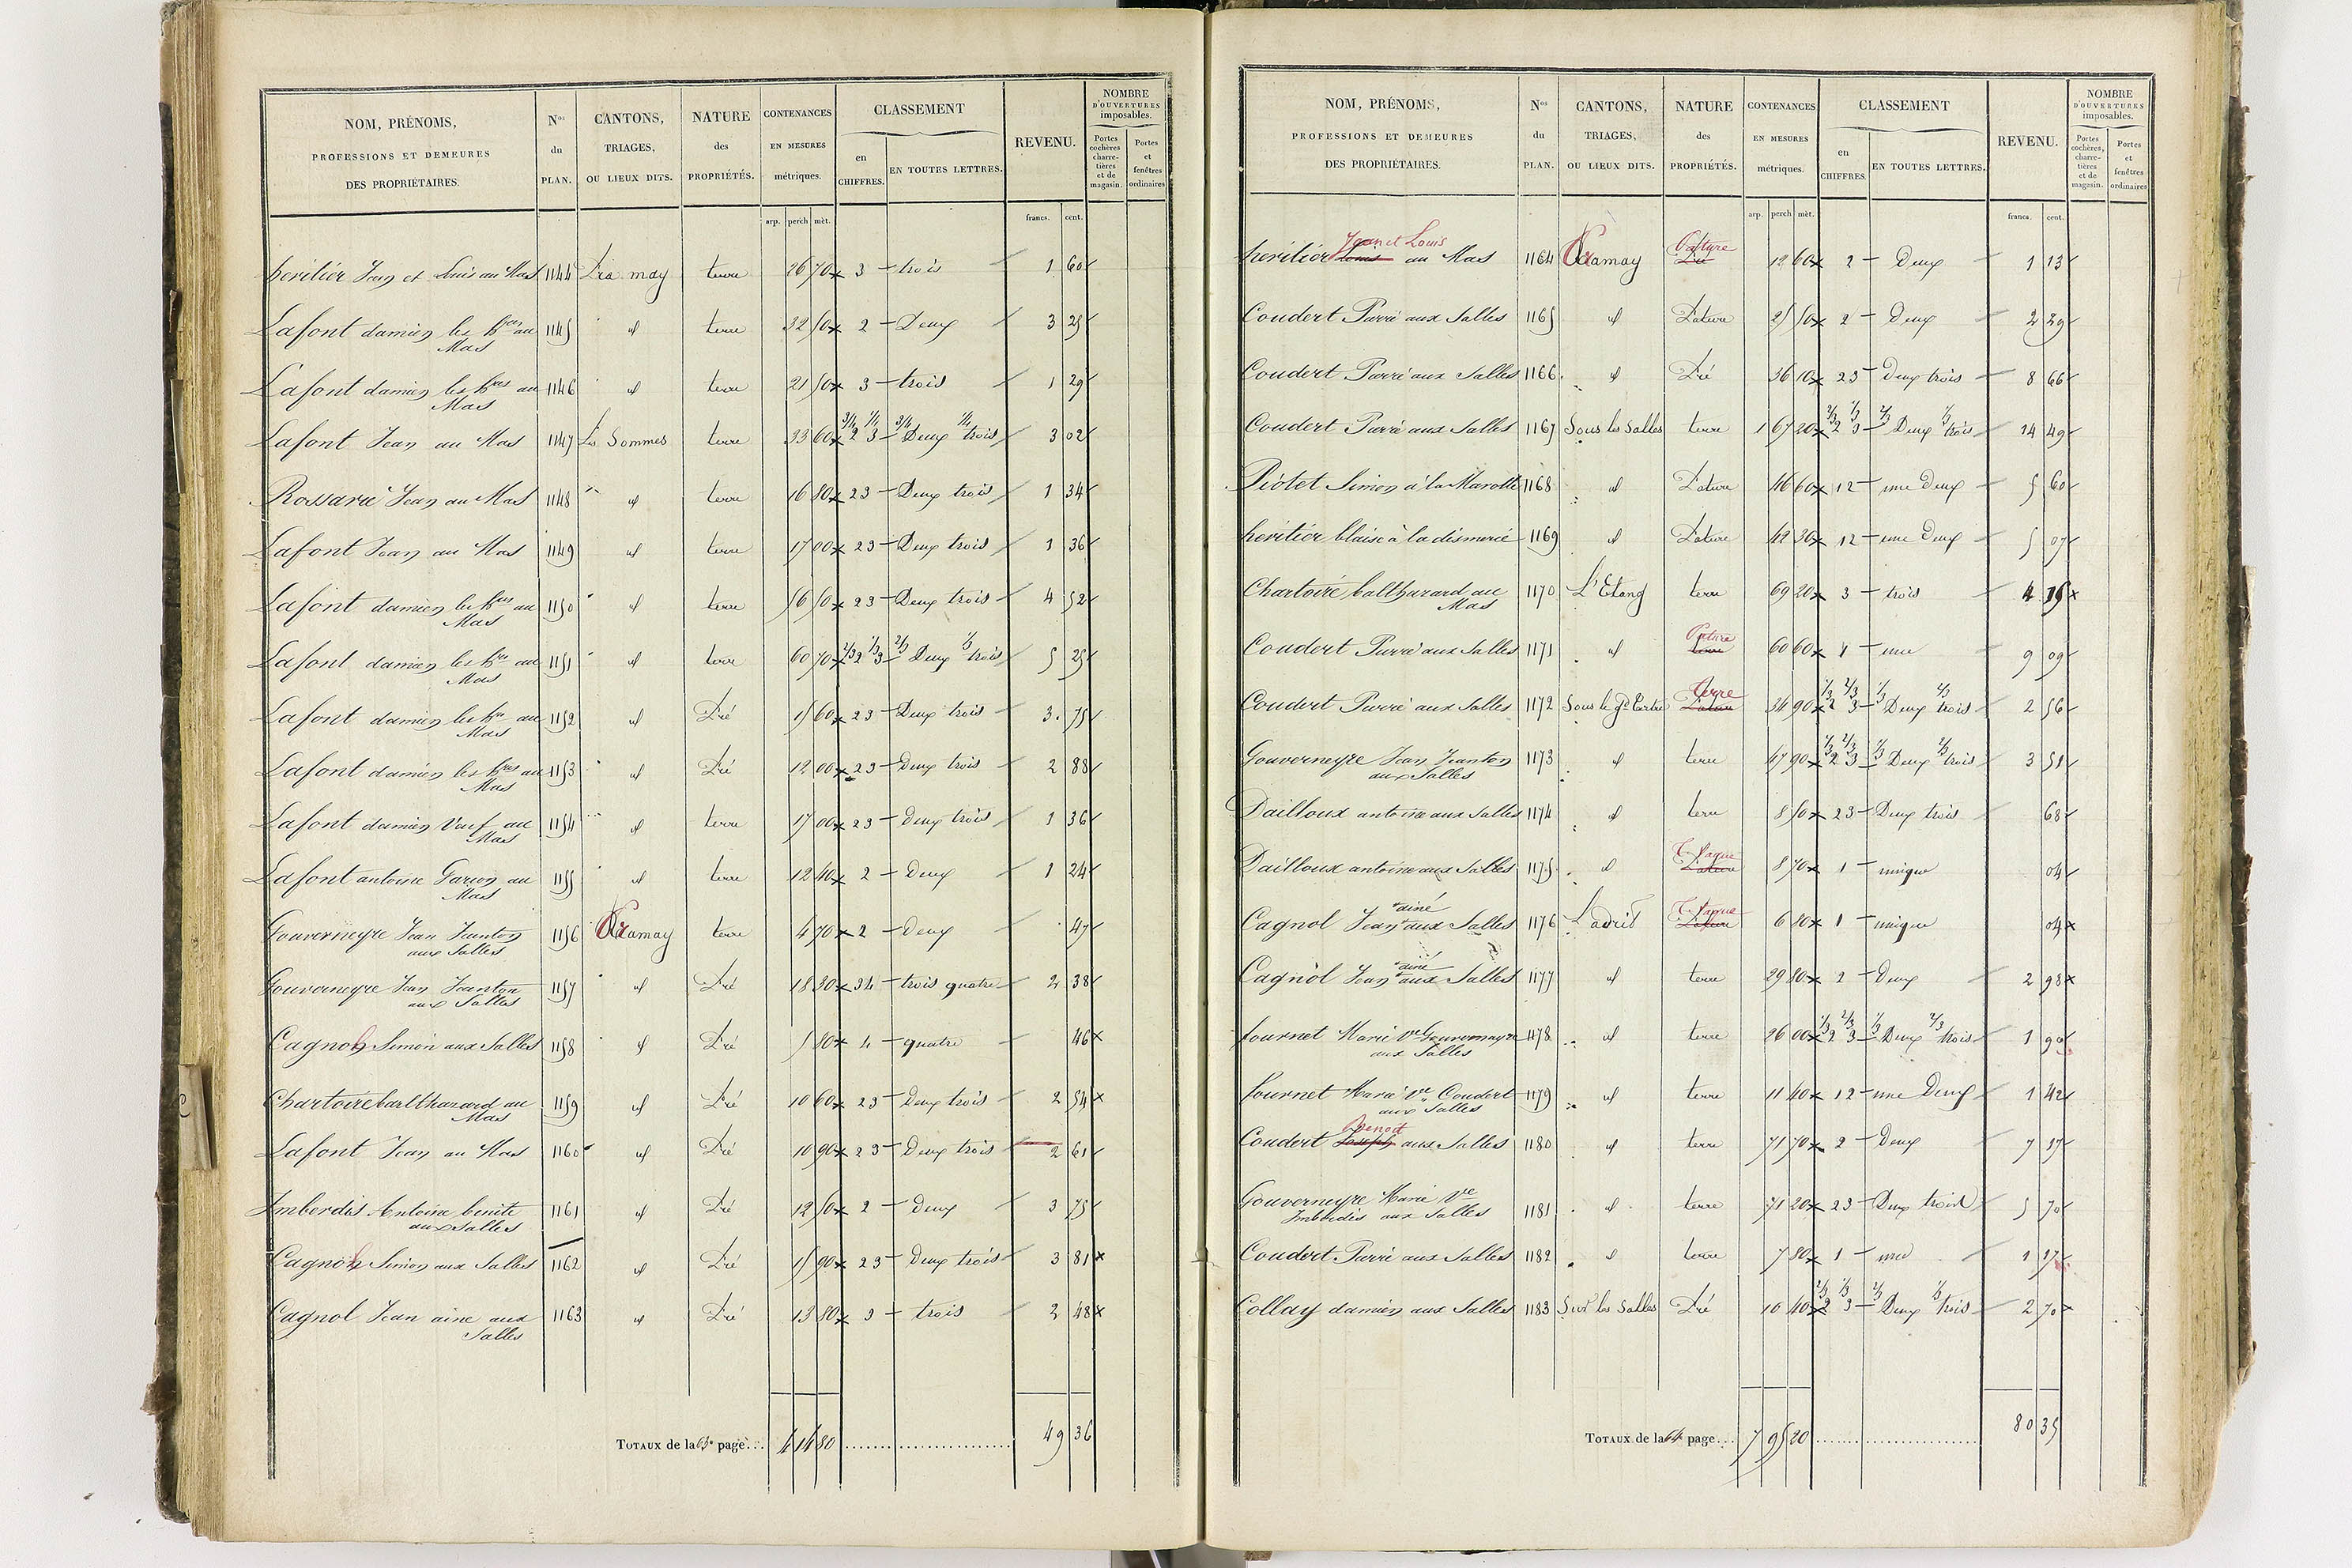 NOM, PRÉNOMS, PROFESSIONS ET DEMEURES DES PROPRIÉTAIRES. Nos du PLAN. CANTONS, TRIAGES, OU LIEUX DITS. NATURE des PROPRIÉTÉS. CONTENANCES EN MESURES métriques. CLASSEMENT en CHIFFRES. EN TOUTES LETTRES. REVENU. NOMBRE D'OUVERTURES imposables. Portes cochères charretières et de magasin. Portes et fenêtres ordinaires
arp. perch mèt. francs. cent.
héritier Jean et Louis au Mas 1144 Pra may terre 26 70 3 trois 1 60
Lafont damien les hres au Mas 1145 id terre 32 50 2 Deux 3 25
Lafont damien les hres au Mas 1146 id terre 21 50 3 trois 1 29
Lafont Jean au Mas 1147 Les Sommes terre 33 60 3/4 2 1/4 3 3/4 Deux 1/4 trois 3 02
Rossarie Jean au Mas 1148 id terre 16 80 23 Deux trois 1 34
Lafont Jean au Mas 1149 id terre 17 00 23 Deux trois 1 36
Lafont damien les hres au Mas 1150 id terre 56 50 23 Deux trois 4 52
Lafont damien les hres au Mas 1151 id terre 60 70 2/3 2 1/3 3 2/3 Deux 1/3 trois 5 25
Lafont damien les hres au Mas 1152 id Pré 15 60 23 Deux trois 3 75
Lafont damien les hres au Mas 1153 id Pré 12 00 23 Deux trois 2 88
Lafont damien Veuf au Mas 1154 id terre 17 00 23 Deux trois 1 36
Lafont antoine Garion au Mas 1155 id terre 12 40 2 Deux 1 24
Gouverneyre Jean Jeanton aux Salles 1156 Pramay terre 4 70 2 Deux 47
Gouverneyre Jean Jeanton aux Salles 1157 id Pré 18 30 34 trois quatre 2 38
Cagnol Simon aux Salles 1158 id Pré 5 80 4 quatre 46
Chartoire barlthazard au Mas 1159 id Pré 10 60 23 Deux trois 2 54
Lafont Jean au Mas 1160 id Pré 10 90 23 Deux trois 2 61
Imberdis Antoine benite aux Salles 1161 id Pré 12 50 2 Deux 3 75
Cagnol Simon aux Salles 1162 id Pré 15 90 23 Deux trois 3 81
Cagnol Jean ainé aux Salles 1163 id Pré 13 80 3 trois 2 48
TOTAUX de la 63e page... 4 14 80 49 36
NOM, PRÉNOMS, PROFESSIONS ET DEMEURES DES PROPRIÉTAIRES. Nos du PLAN. CANTONS, TRIAGES, OU LIEUX DITS. NATURE des PROPRIÉTÉS. CONTENANCES EN MESURES métriques. CLASSEMENT en CHIFFRES. EN TOUTES LETTRES. REVENU. NOMBRE D'OUVERTURES imposables. Portes cochères, charretières et de magasin. Portes et fenêtres ordinaires
arp. perch mèt. francs. cent.
Jean et Louis Pature
héritier Louis au Mas 1164 Pramay Pré 12 60 2 Deux 1 13
Coudert Pierre aux Salles 1165 id Pature 25 50 2 Deux 2 29
Coudert Pierre aux Salles 1166 id Pré 36 10 23 Deux trois 8 66
Coudert Pierre aux Salles 1167 Sous les Salles terre 1 67 20 2/3 2 1/3 3 2/3 Deux 1/3 trois 14 49
Piotet Simon à la Marotte 1168 id Pature 46 60 12 une Deux 5 60
héritier blaise à la dismerie 1169 id Pature 42 30 12 une Deux 5 07
Chartoire balthazard au Mas 1170 L'Etang terre 69 20 3 trois 4 15
Pature
Coudert Pierre aux Salles 1171 id terre 60 60 1 une 9 09
terre
Coudert Pierre aux Salles 1172 Sous le gd Tertre Pature 34 90 1/3 2 2/3 3 1/3 Deux 2/3 trois 2 56
Gouverneyre Jean Jeanton aux Salles 1173 id terre 47 90 1/3 2 2/3 3 1/3 Deux 2/3 trois 3 51
Dailloux antoine aux Salles 1174 id terre 8 50 23 Deux trois 68
Dailloux antoine aux Salles 1175 id Pature 8 70 1 unique 04
Cagnol Jean ainé aux Salles 1176 Pature 6 80 1 unique 04
Cagnol Jean ainé aux Salles 1177 id terre 29 80 2 Deux 2 98
fournet Marie ve Gouverneyre aux Salles 1178 id terre 26 00 1/3 2 2/3 3 1/3 Deux 2/3 trois 1 90
fournet Marie ve Coudert aux Salles 1179 id terre 11 40 12 une Deux 1 42
Benoit
Coudert Joseph aux Salles 1180 id terre 71 70 2 Deux 7 17
Gouverneyre Marie Ve Imberdis aux Salles 1181 id terre 71 20 23 Deux trois 5 70
Coudert Pierre aux Salles 1182 id terre 7 80 1 une 1 17
Collay damien aux Salles 1183 Sur les Salles Pré 10 40 2/3 2 1/3 3 2/3 Deux 1/3 trois 2 70
TOTAUX de la 64e page... 7 95 20 80 35